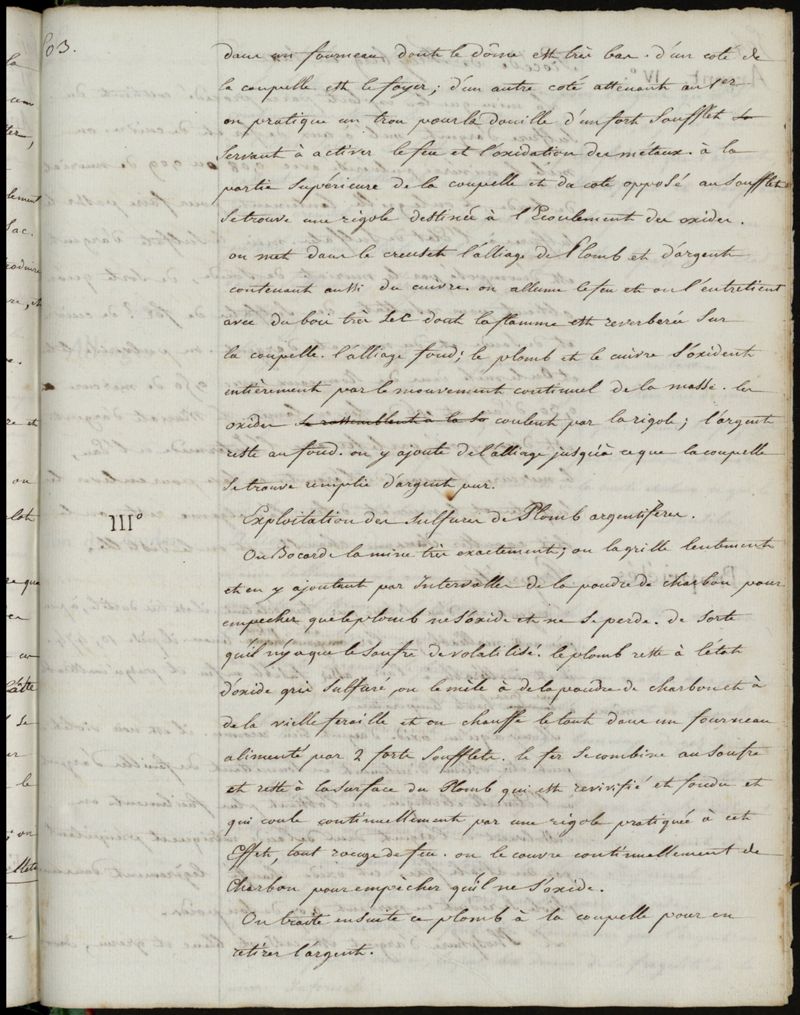 803.
dans un fourneau dont le dôme est très bas. d'un coté de
la coupelle est le foyer; d'un autre coté attenant au 1er
on pratique un trou pour la douille d'un fort Soufflet
Servant à activer le feu et l'oxidation des métaux. à la
partie Supérieure de la coupelle et du coté opposé au Soufflet
Se trouve une rigole destinée à l'Ecoulement des oxides.
on met dans le creuset l'alliage de Plomb et d'argent
contenant aussi du cuivre. on allume le feu et on l'entretient
avec du bois très sec dont la flamme est reverberée Sur
la coupelle. l'alliage fond; le plomb et le cuivre S'oxident
entièrement par le mouvement continuel de la masse. les
oxides se rassemblent à la coulent par la rigole; l'argent
reste au fond. on y ajoute de l'alliage jusqu'à ce que la coupelle
Se trouve remplie d'argent pur.
III°
Exploitation des Sulfures de Plomb argentifères.
On Bocarde la mine très exactement; on la grille lentement
et en y ajoutant par Intervalles de la poudre de charbon pour
empecher que le plomb ne S'oxide et ne Se perde. de Sorte
qu'il n'y a que le Soufre de volatilisé. le plomb reste à l'état
d'oxide gris Sulfuré, on le mêle à de la poudre de charbon et à
de la vielle feraille et on chauffe le tout dans un fourneau
alimenté par 2 forts Soufflets. le fer Se combine au Soufre
et reste à la surface du Plomb qui est revivifié et fondu et
qui coule continuellement par une rigole pratiquée à cet
Effet, tout rouge de feu. on le couvre continuellement de
Charbon pour empècher qu'il ne S'oxide.
On traite ensuite ce plomb à la coupelle pour en
retirer l'argent.